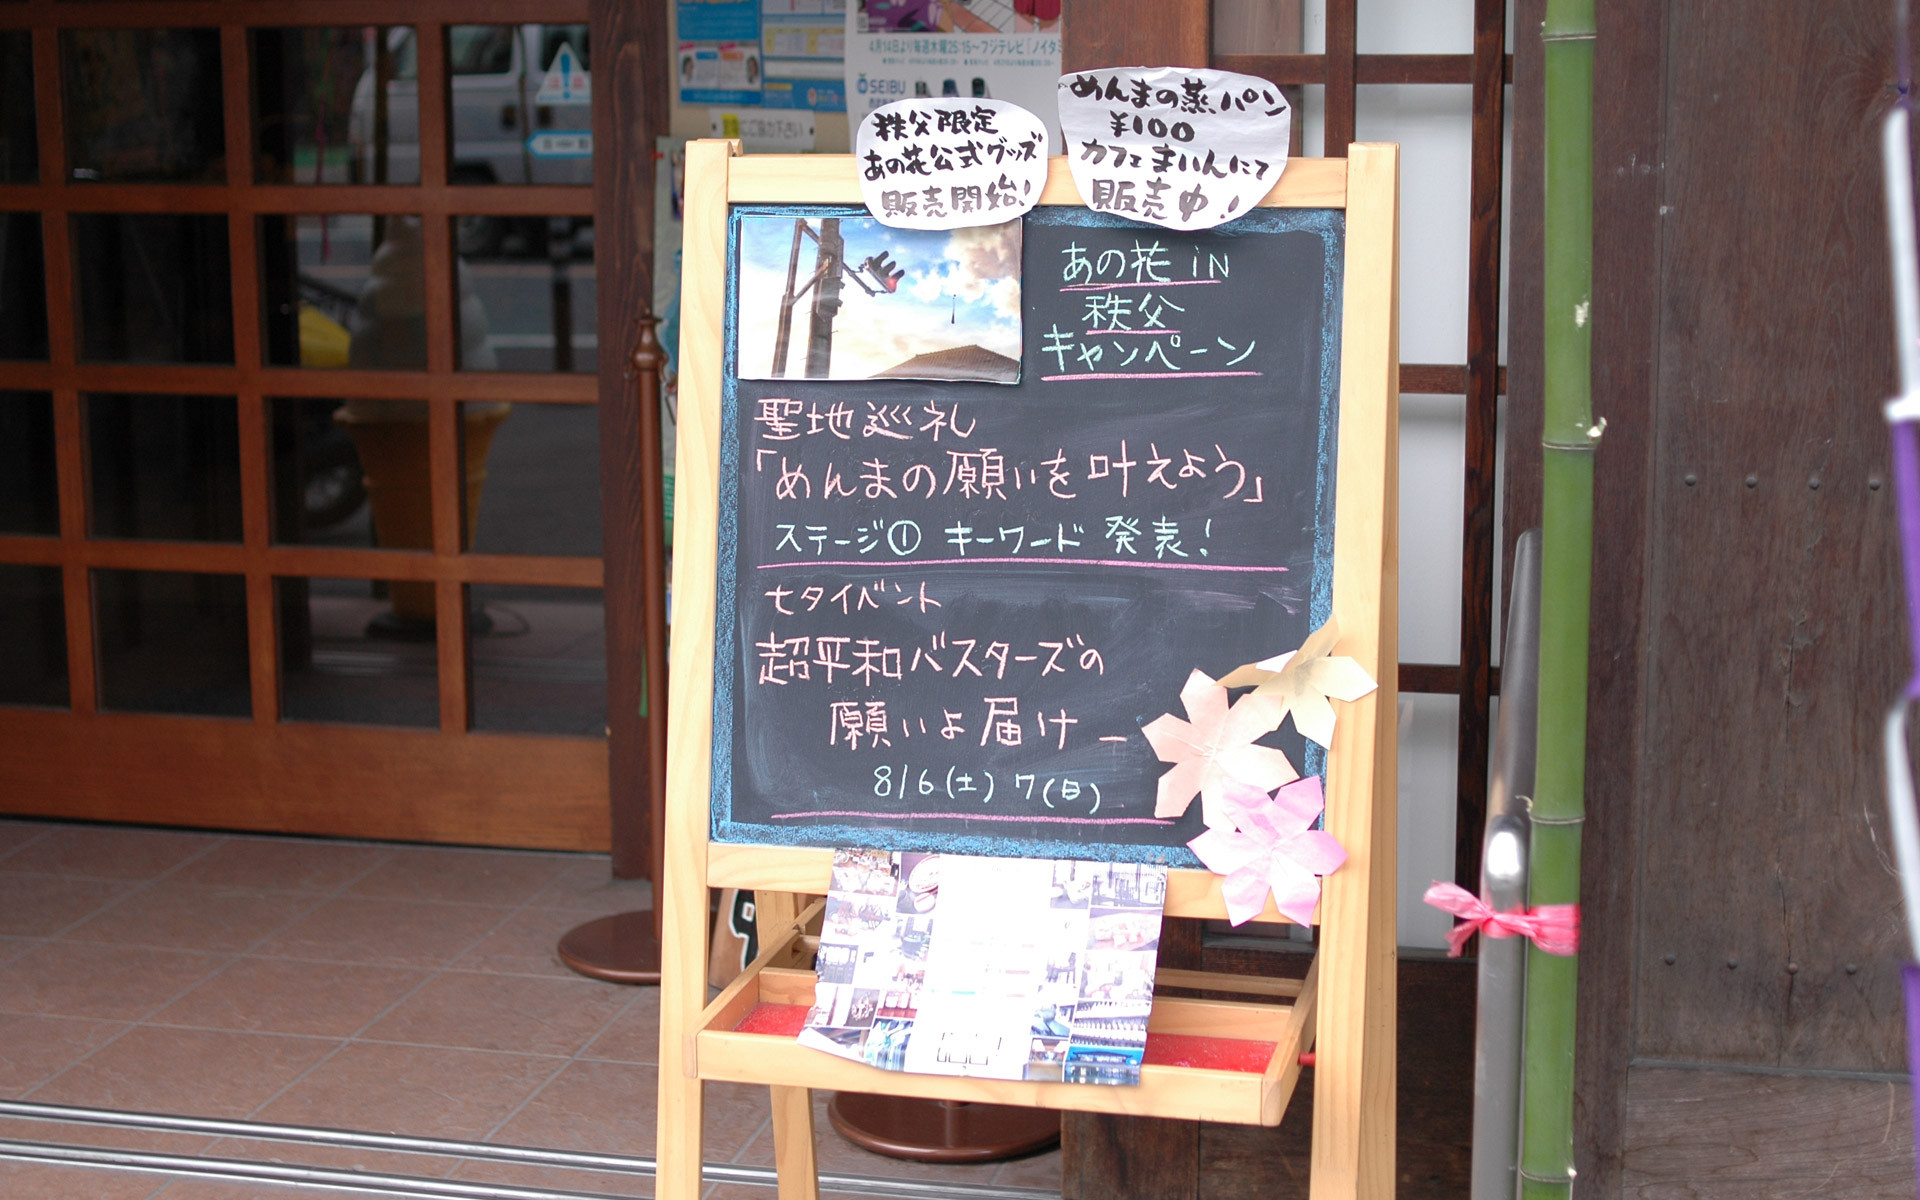 4月14日より毎週木曜25:15〜フジテレビ「ノイタミ
SEIBU
秩父限定
あの花公式グッズ
販売開始!
めんまの蒸パン
¥100
カフェまいんにて
販売中!
あの花 iN
秩父
キャンペーン
聖地巡礼
「めんまの願いを叶えよう」
ステージ① キーワード 発表!
七夕イベント
超平和バスターズの
願いよ届けー
8/6(土) 7(日)